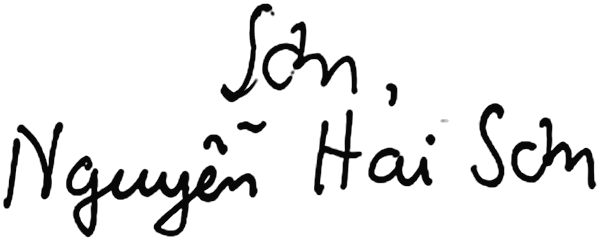 Sơn
Nguyễn Hải Sơn